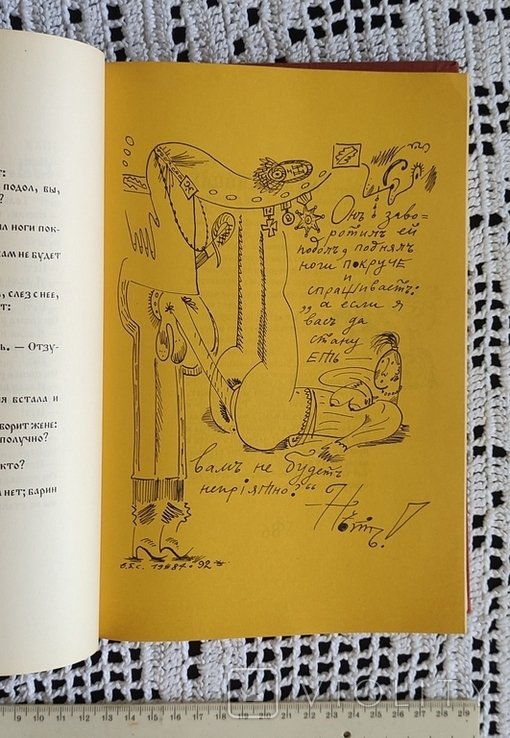 т:
подол, вы,
?
л ноги пок-
ам не будет
, слез с нее,
т:
ь. — Отзу-
ія встала и
ворит жене:
получно?
кто?
нет; барин
Онъ заво=
ротилъ ей
подолъ, поднялъ
ноги покруче
и
спрашиваетъ:
„а если я
васъ да
стану
еть
вамъ не будетъ
непріятно?“
Нѣтъ!
1987-92
VIOLITY